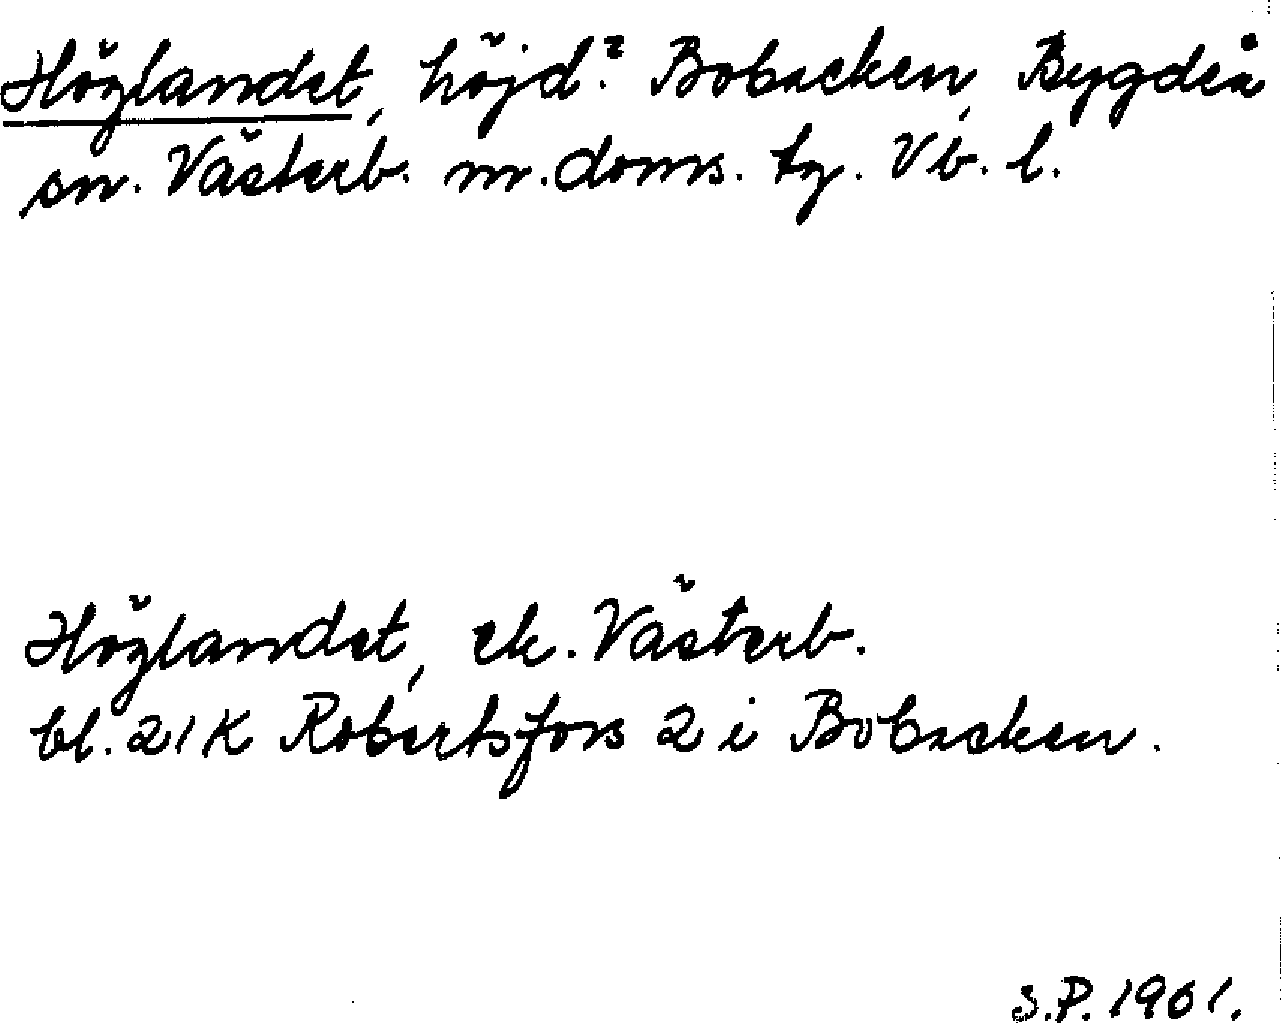 Höglandet, höjd? Bobacken, Bygdeå
sn. Västerb. m. doms. tg. Vb. l.
Höglandet, ek. Västerb.
bl. 21K Robertsfors 2 i Bobacken.
S.P. 1961.